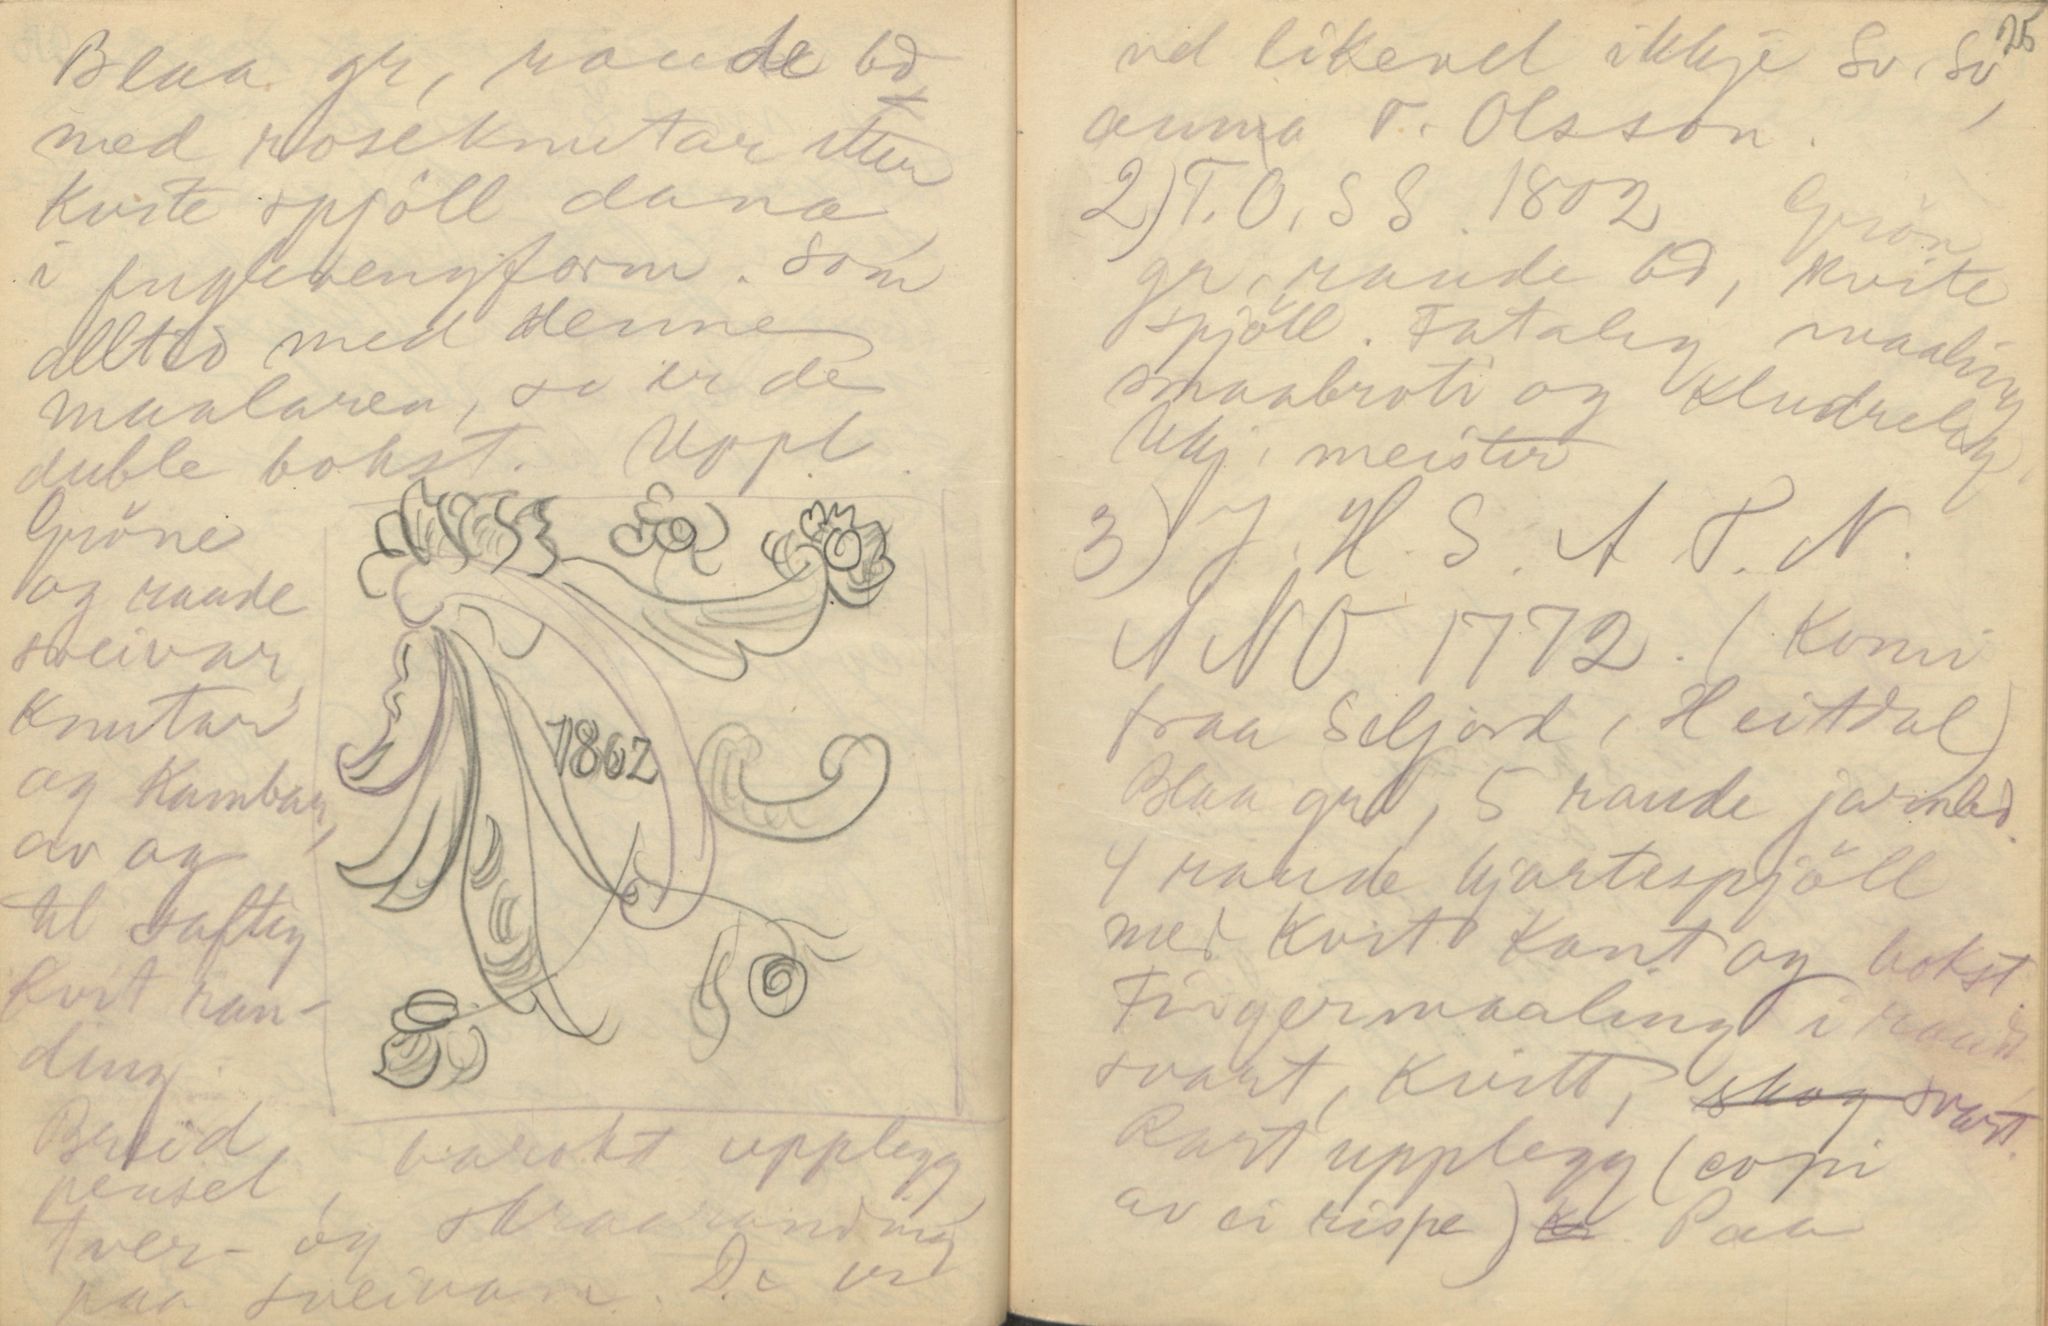 Blaa gr, raude bd
med roseknutar etter
Kvite spjöll dana
i fuglevengform. Som
alltid med denne
maalaren, so er de
duble bokst. Uppl.
Gröne
og raude
sveivar,
Knutar
og Kambar,
av og
til saftig
Kvit ran-
ding.
1862
Breid
pensel, barokt upplegg,
tver- og skraaranding
paa sveivan. De er
25
vel likevel ikkje So, So,
anna T. Olsson.
2) T. O. S S. 1802 Grön
gr, raude bd, Kvite
spjöll. Fataleg maaling
smaabroti og Kludreleg,
Ukj. meister
3) J. H. S. A T. N.
ANO 1772. (Komi
fraa Seljord, Heitdal)
Blaa gr, 5 raude jarnbd.
4 raude hjartespjöll
med Kvit Kant og bokst.
Fingermaaling i raudt
svart, Kvitt, skog svart.
Rart upplegg (copi
av ei rispe) Paa